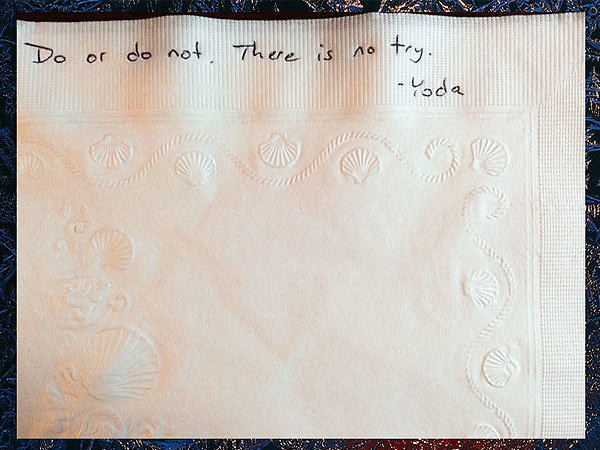 Do or do not. There is no try.
-Yoda